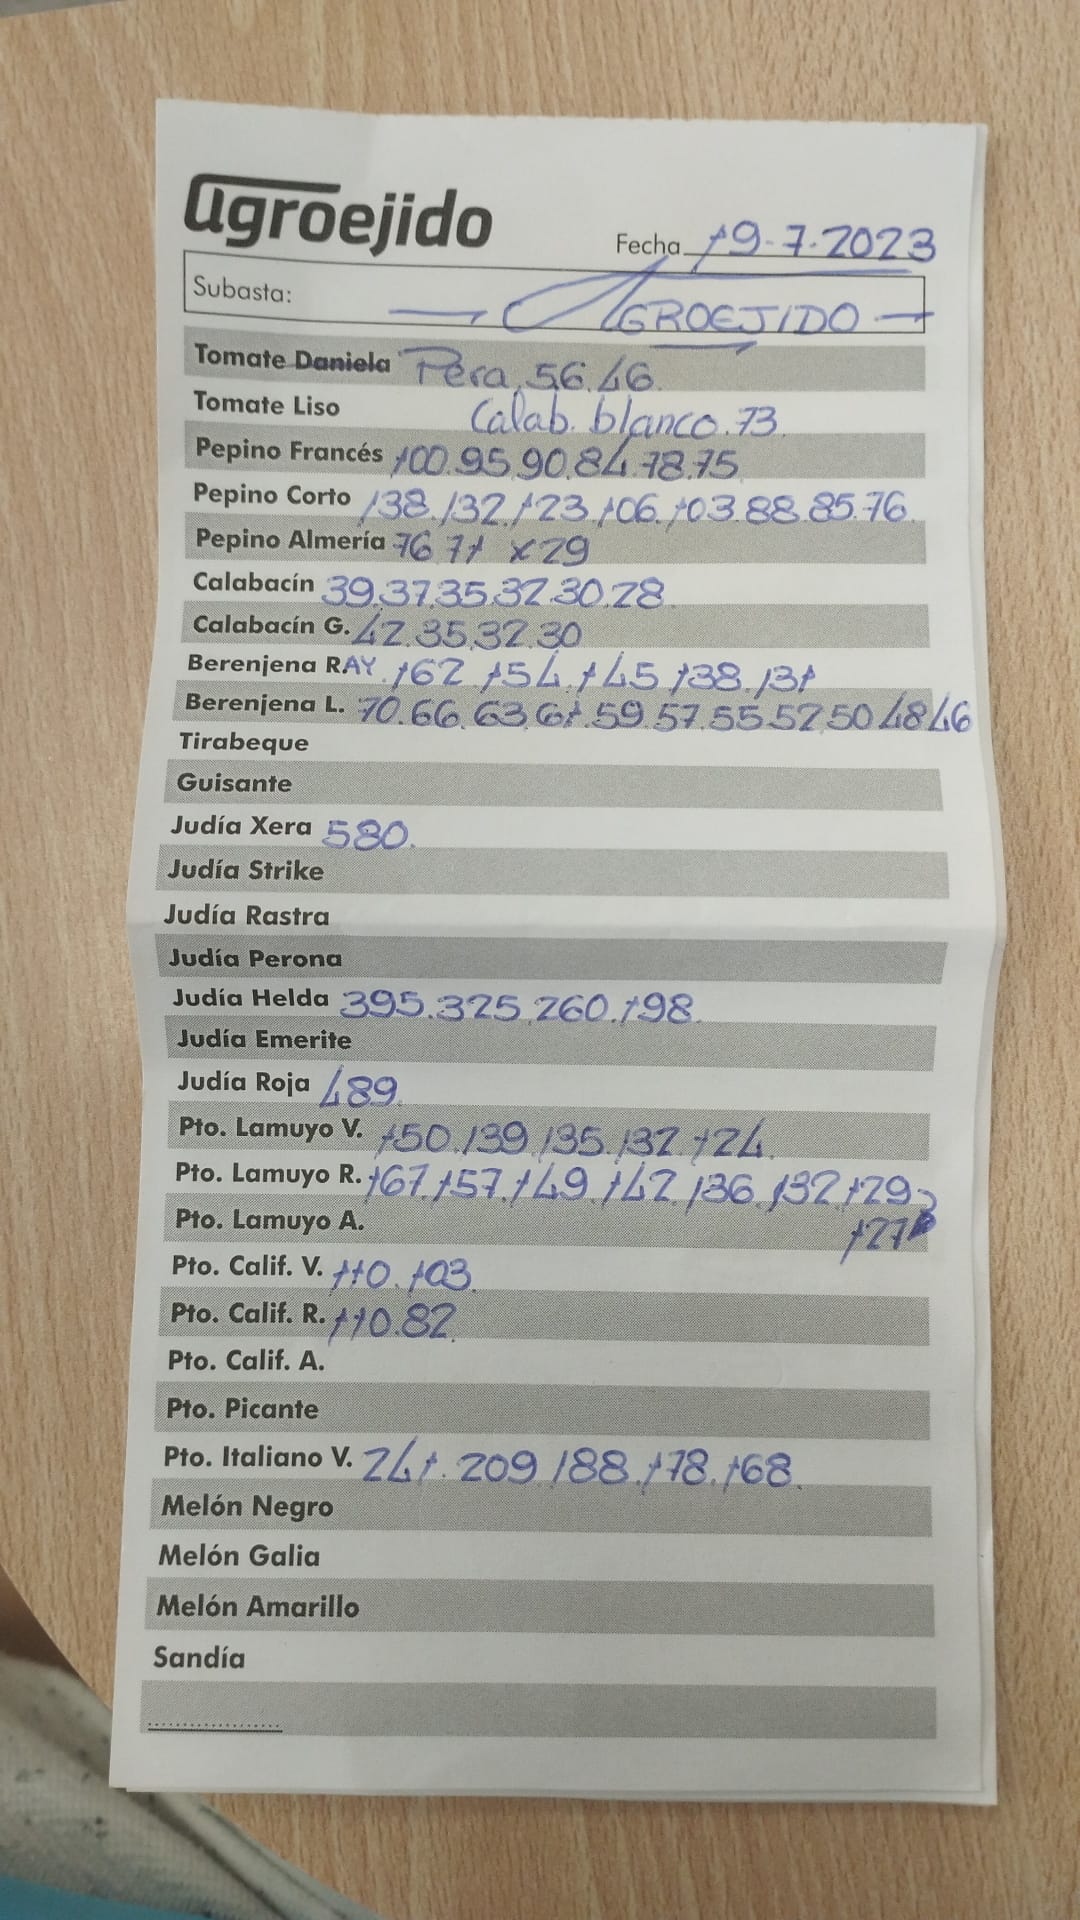 agroejido
Fecha 19-7-2023
Subasta: AGROEJIDO
Tomate Daniela Pera. 56.46.
Tomate Liso Calab. blanco. 73.
Pepino Francés 100.95.90.84.78.75.
Pepino Corto 138.132.123.106.103.88.85.76.
Pepino Almería 76 71 x 29
Calabacín 39.37.35.32.30.28.
Calabacín G. 42.35.32.30
Berenjena RAY. 162 154.145 138.131
Berenjena L. 70.66.63.61.59.57.55.52.50 48 46
Tirabeque
Guisante
Judía Xera 580.
Judía Strike
Judía Rastra
Judía Perona
Judía Helda 395.325.260.198.
Judía Emerite
Judía Roja 489.
Pto. Lamuyo V. 150.139.135.132.124.
Pto. Lamuyo R. 167.157.149.142.136.132.129
127
Pto. Lamuyo A.
Pto. Calif. V. 110.103.
Pto. Calif. R. 110.82.
Pto. Calif. A.
Pto. Picante
Pto. Italiano V. 241.209.188.178.168.
Melón Negro
Melón Galia
Melón Amarillo
Sandía